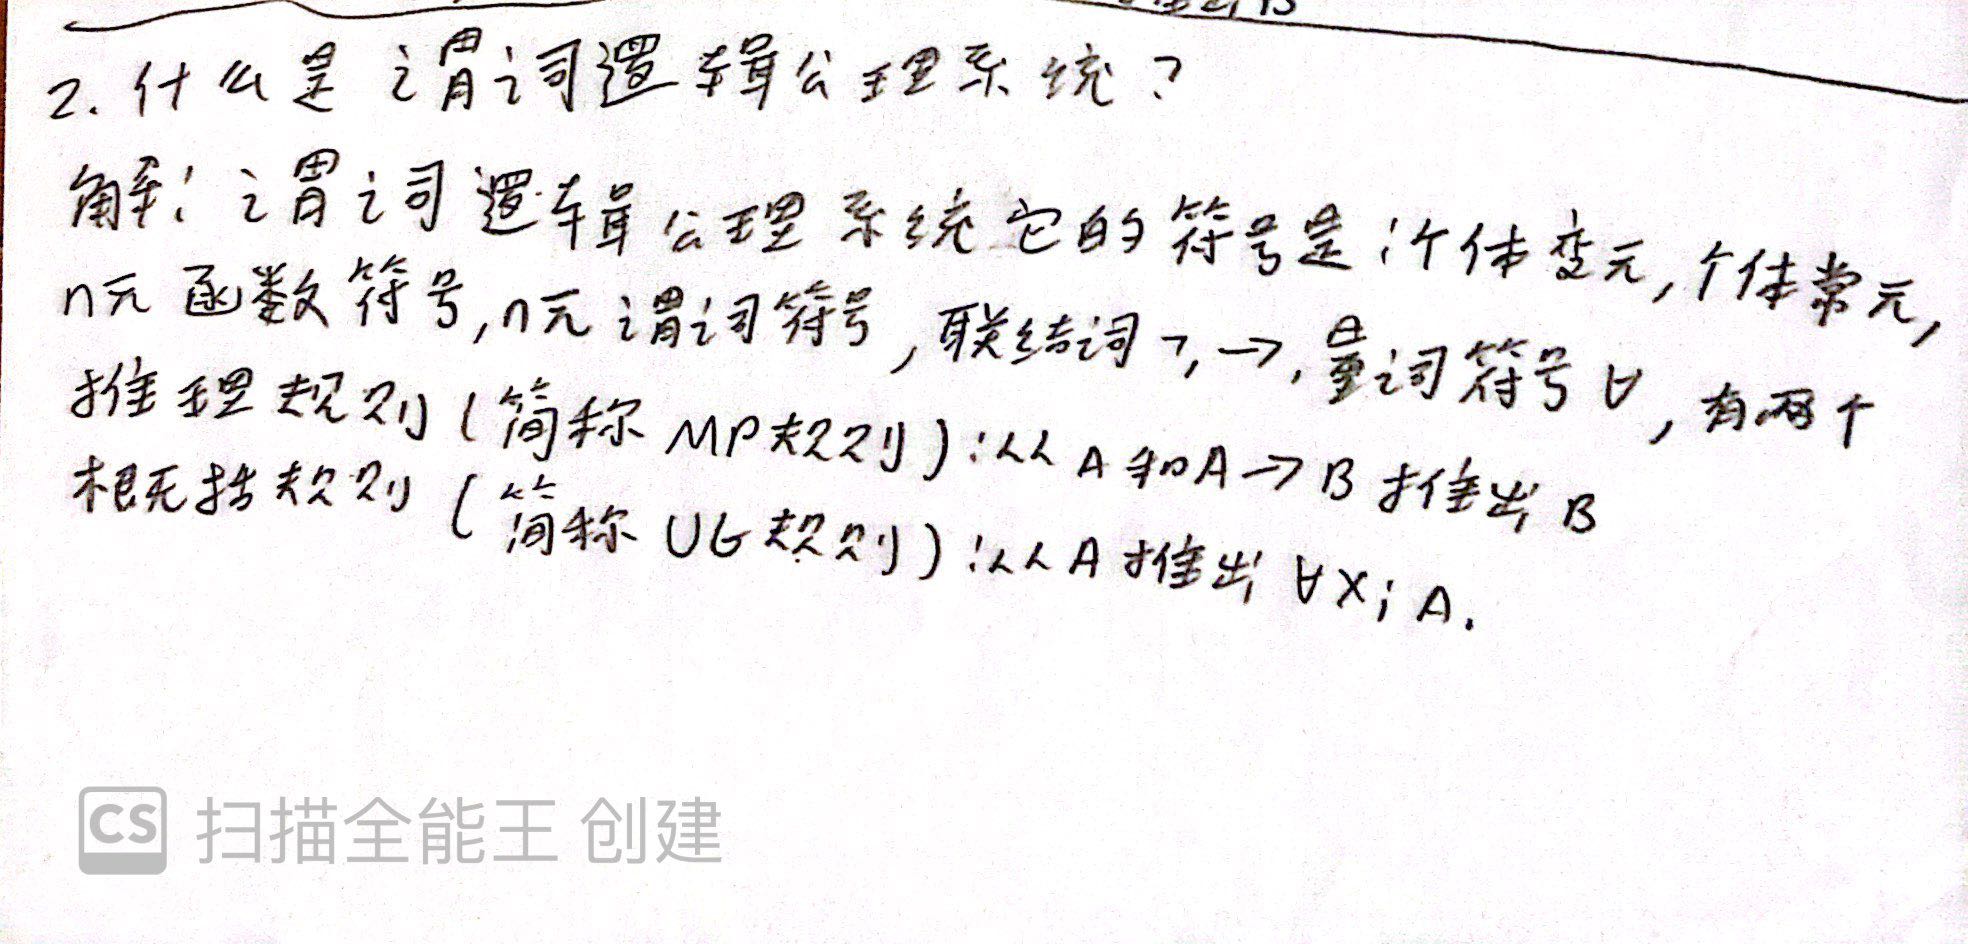 2.什么是谓词逻辑公理系统?
解:谓词逻辑公理系统它的符号是:个体变元,个体常元,
n元函数符号,n元谓词符号,联结词¬,→,量词符号∀,有两个
推理规则(简称MP规则):从A和A→B推出B
概括规则(简称UG规则):从A推出∀xiA.
CS 扫描全能王 创建